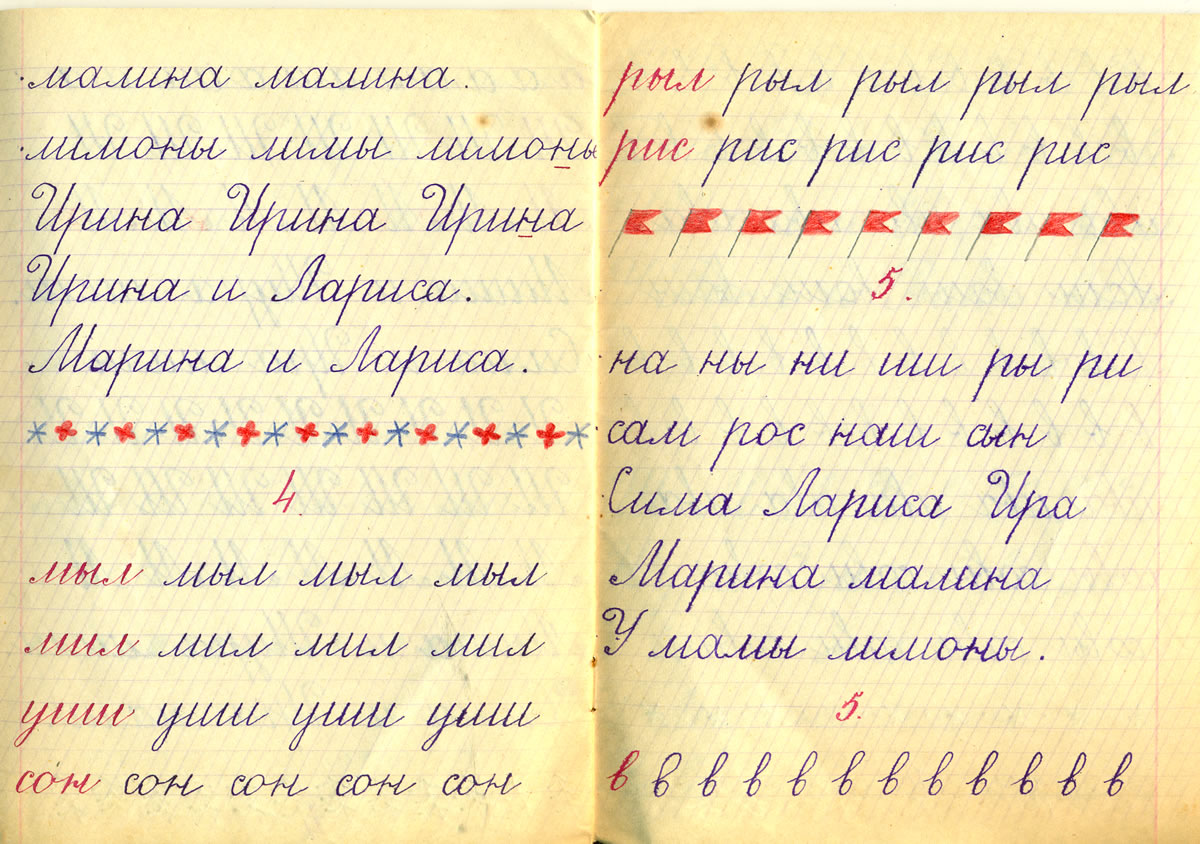 малина малина.
лимоны лимы лимоны
Ирина Ирина Ирина
Ирина и Лариса.
Марина и Лариса.
4.
мыл мыл мыл мыл
мил мил мил мил
уши уши уши уши
сон сон сон сон сон
рыл рыл рыл рыл рыл
рис рис рис рис рис
5.
на ны ни ши ры ри
сам рос наш сын
Сима Лариса Ира
Марина малина
У мамы лимоны.
5.
в в в в в в в в в в в в